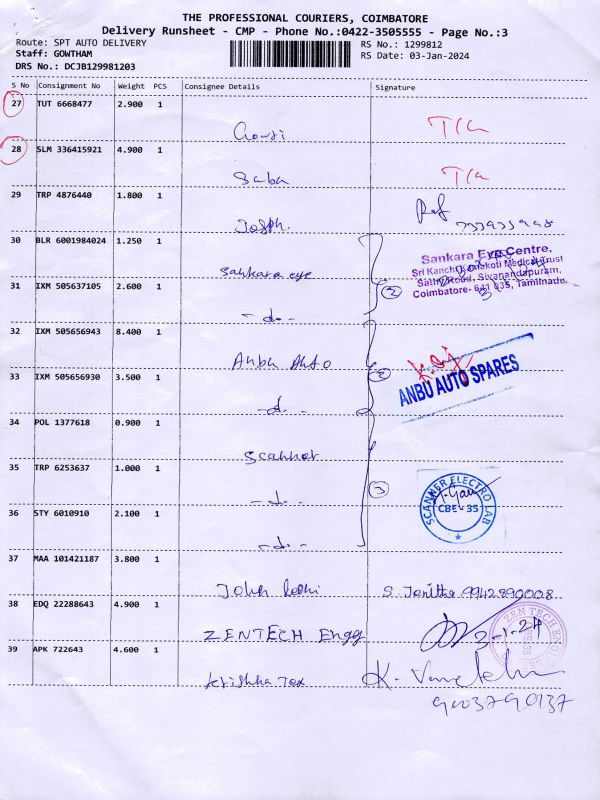 THE PROFESSIONAL COURIERS, COIMBATORE
Delivery Runsheet - CMP - Phone No.:0422-3505555 - Page No.:3
Route: SPT AUTO DELIVERY RS No.: 1299812
Staff: GOWTHAM RS Date: 03-Jan-2024
DRS No.: DCJB129981203
S No Consignment No Weight PCS Consignee Details Signature
27 TUT 6668477 2.900 1
Gowri
28 SLM 336415921 4.900 1
Saba
29 TRP 4876440 1.800 1
30 BLR 6001984024 1.250 1
Sankara eye
Sankara Eye Centre,
Sri Kanchi Kamakoti Medical Trust
Sathy Road, Sivanandapuram,
Coimbatore- 641 035, Tamilnadu.
31 IXM 505637105 2.600 1
2
-do-
32 IXM 505656943 8.400 1
Anbu Auto
ANBU AUTO SPARES
33 IXM 505656930 3.500 1
-do-
34 POL 1377618 0.900 1
Scanner
35 TRP 6253637 1.000 1
3
-do-
SCANNER ELECTRO LAB
CBE-35
36 STY 6010910 2.100 1
-do-
37 MAA 101421187 3.800 1
9942890008
38 EDQ 22288643 4.900 1
ZENTECH Engg
3-1-24
39 APK 722643 4.600 1
Krishna Tex
9003790137